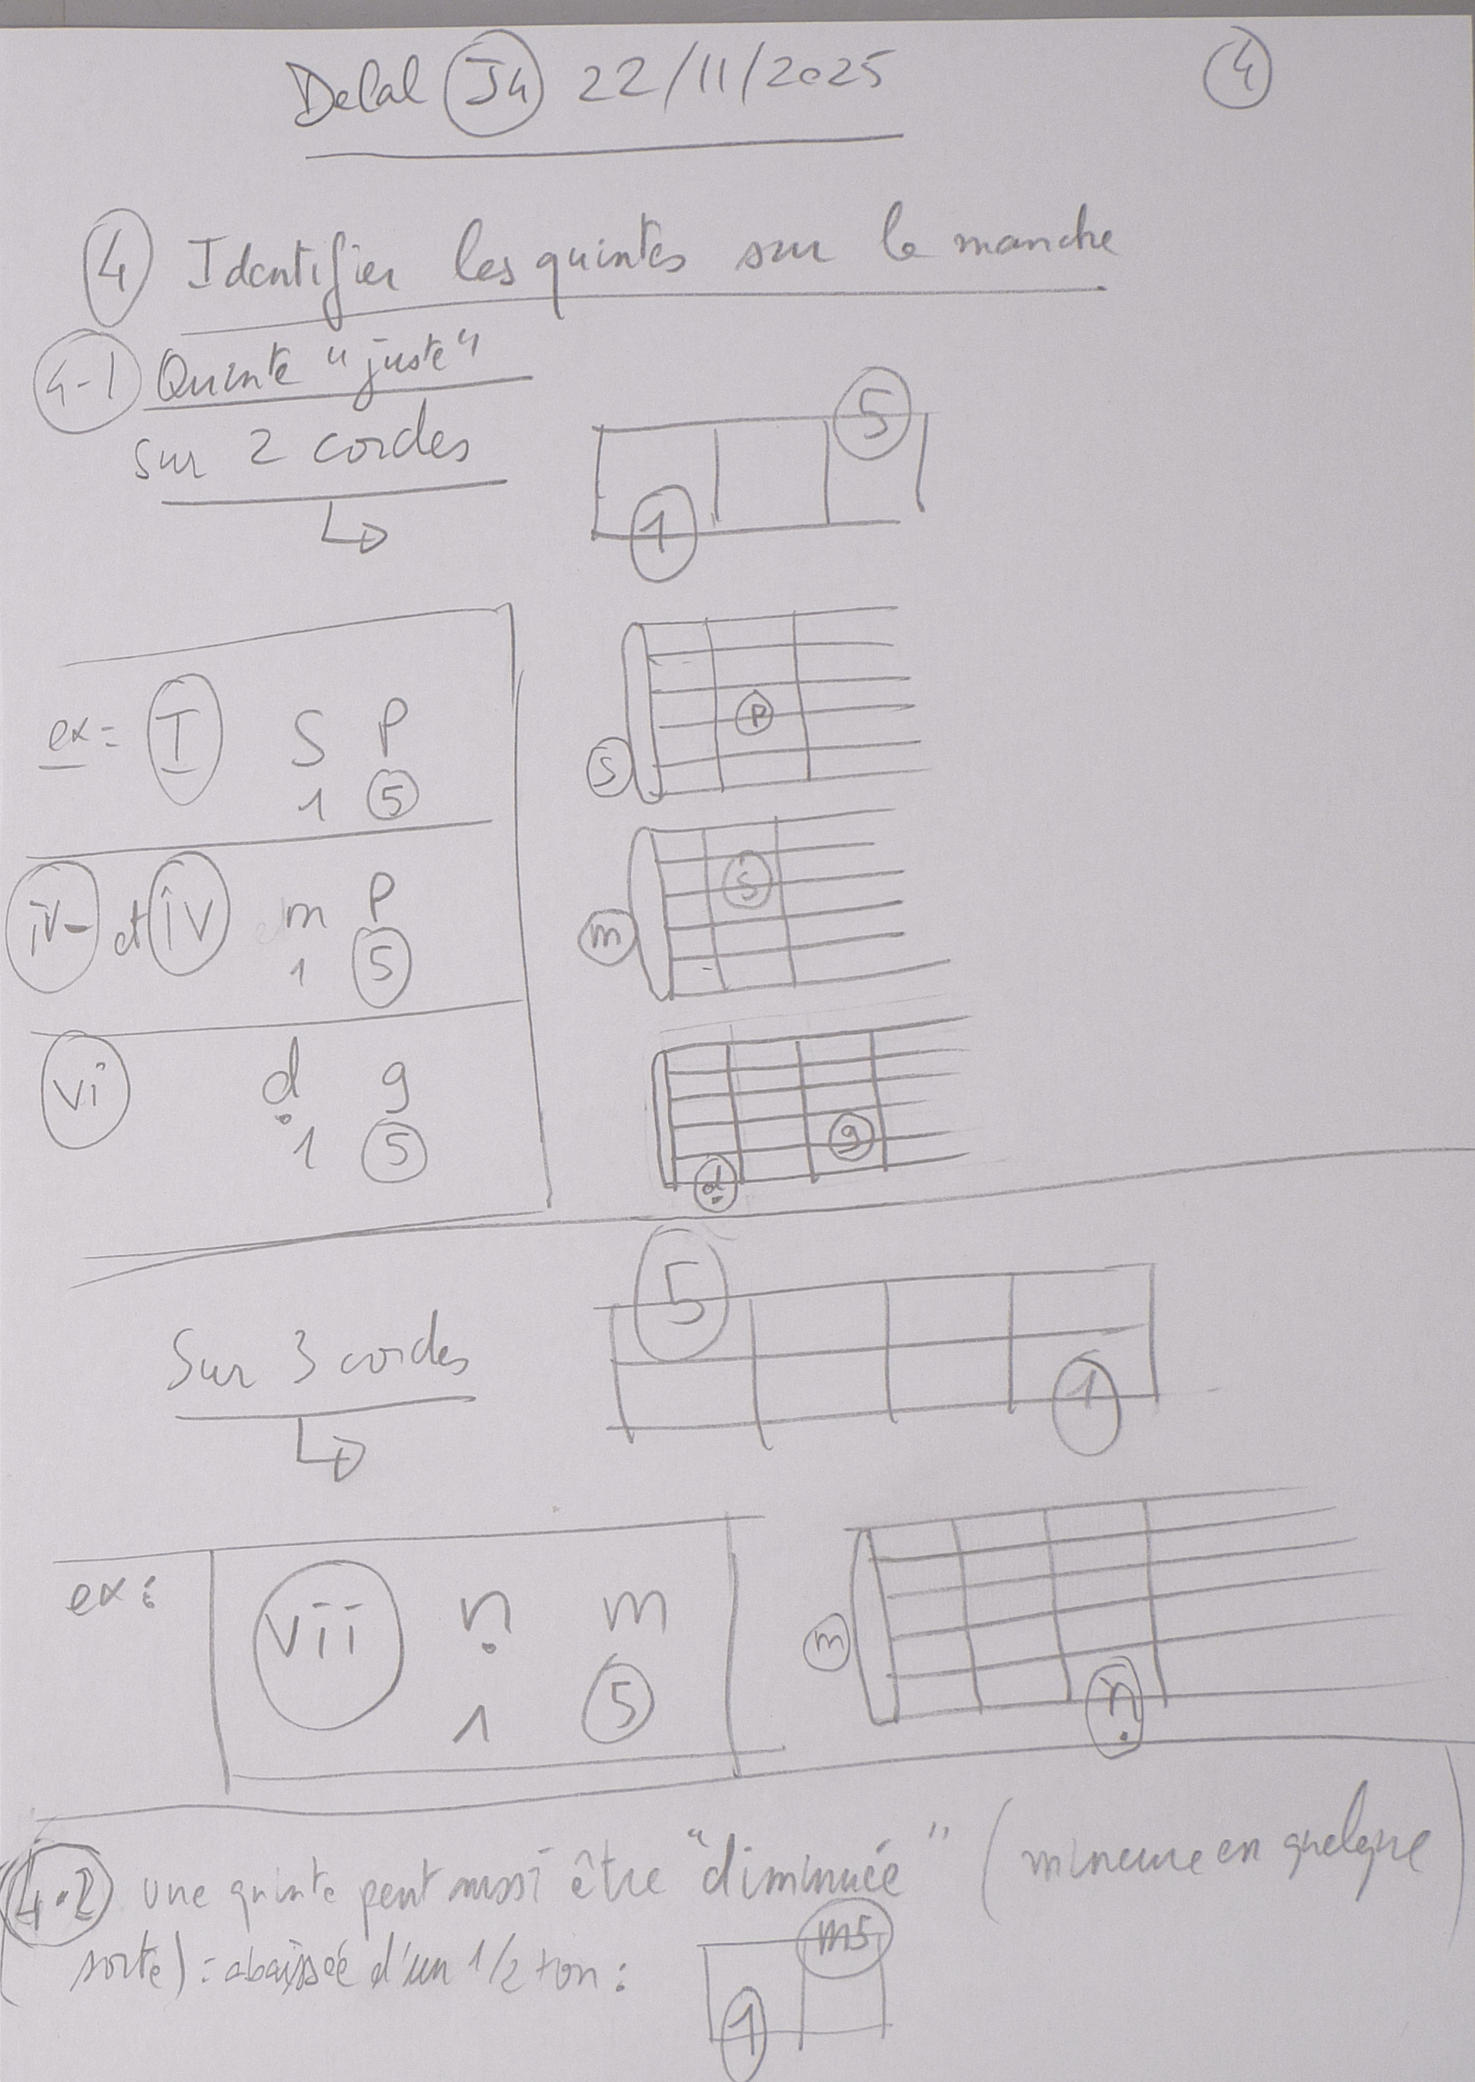 Delal J4 22/11/2025
4
4 Identifier les quintes sur le manche
4-1 Quinte "juste"
sur 2 cordes
5
1
ex= I S P
1 5
P
S
iv- et iV m P
1 5
S
m
vi ḍ g
1 5
g
ḍ
Sur 3 cordes
5
1
ex:
vii ṇ m
1 5
m
ṇ
4.2 une quinte peut aussi être "diminuée" (mineure en quelque
sorte) = abaissée d'un 1/2 ton :
m5
1